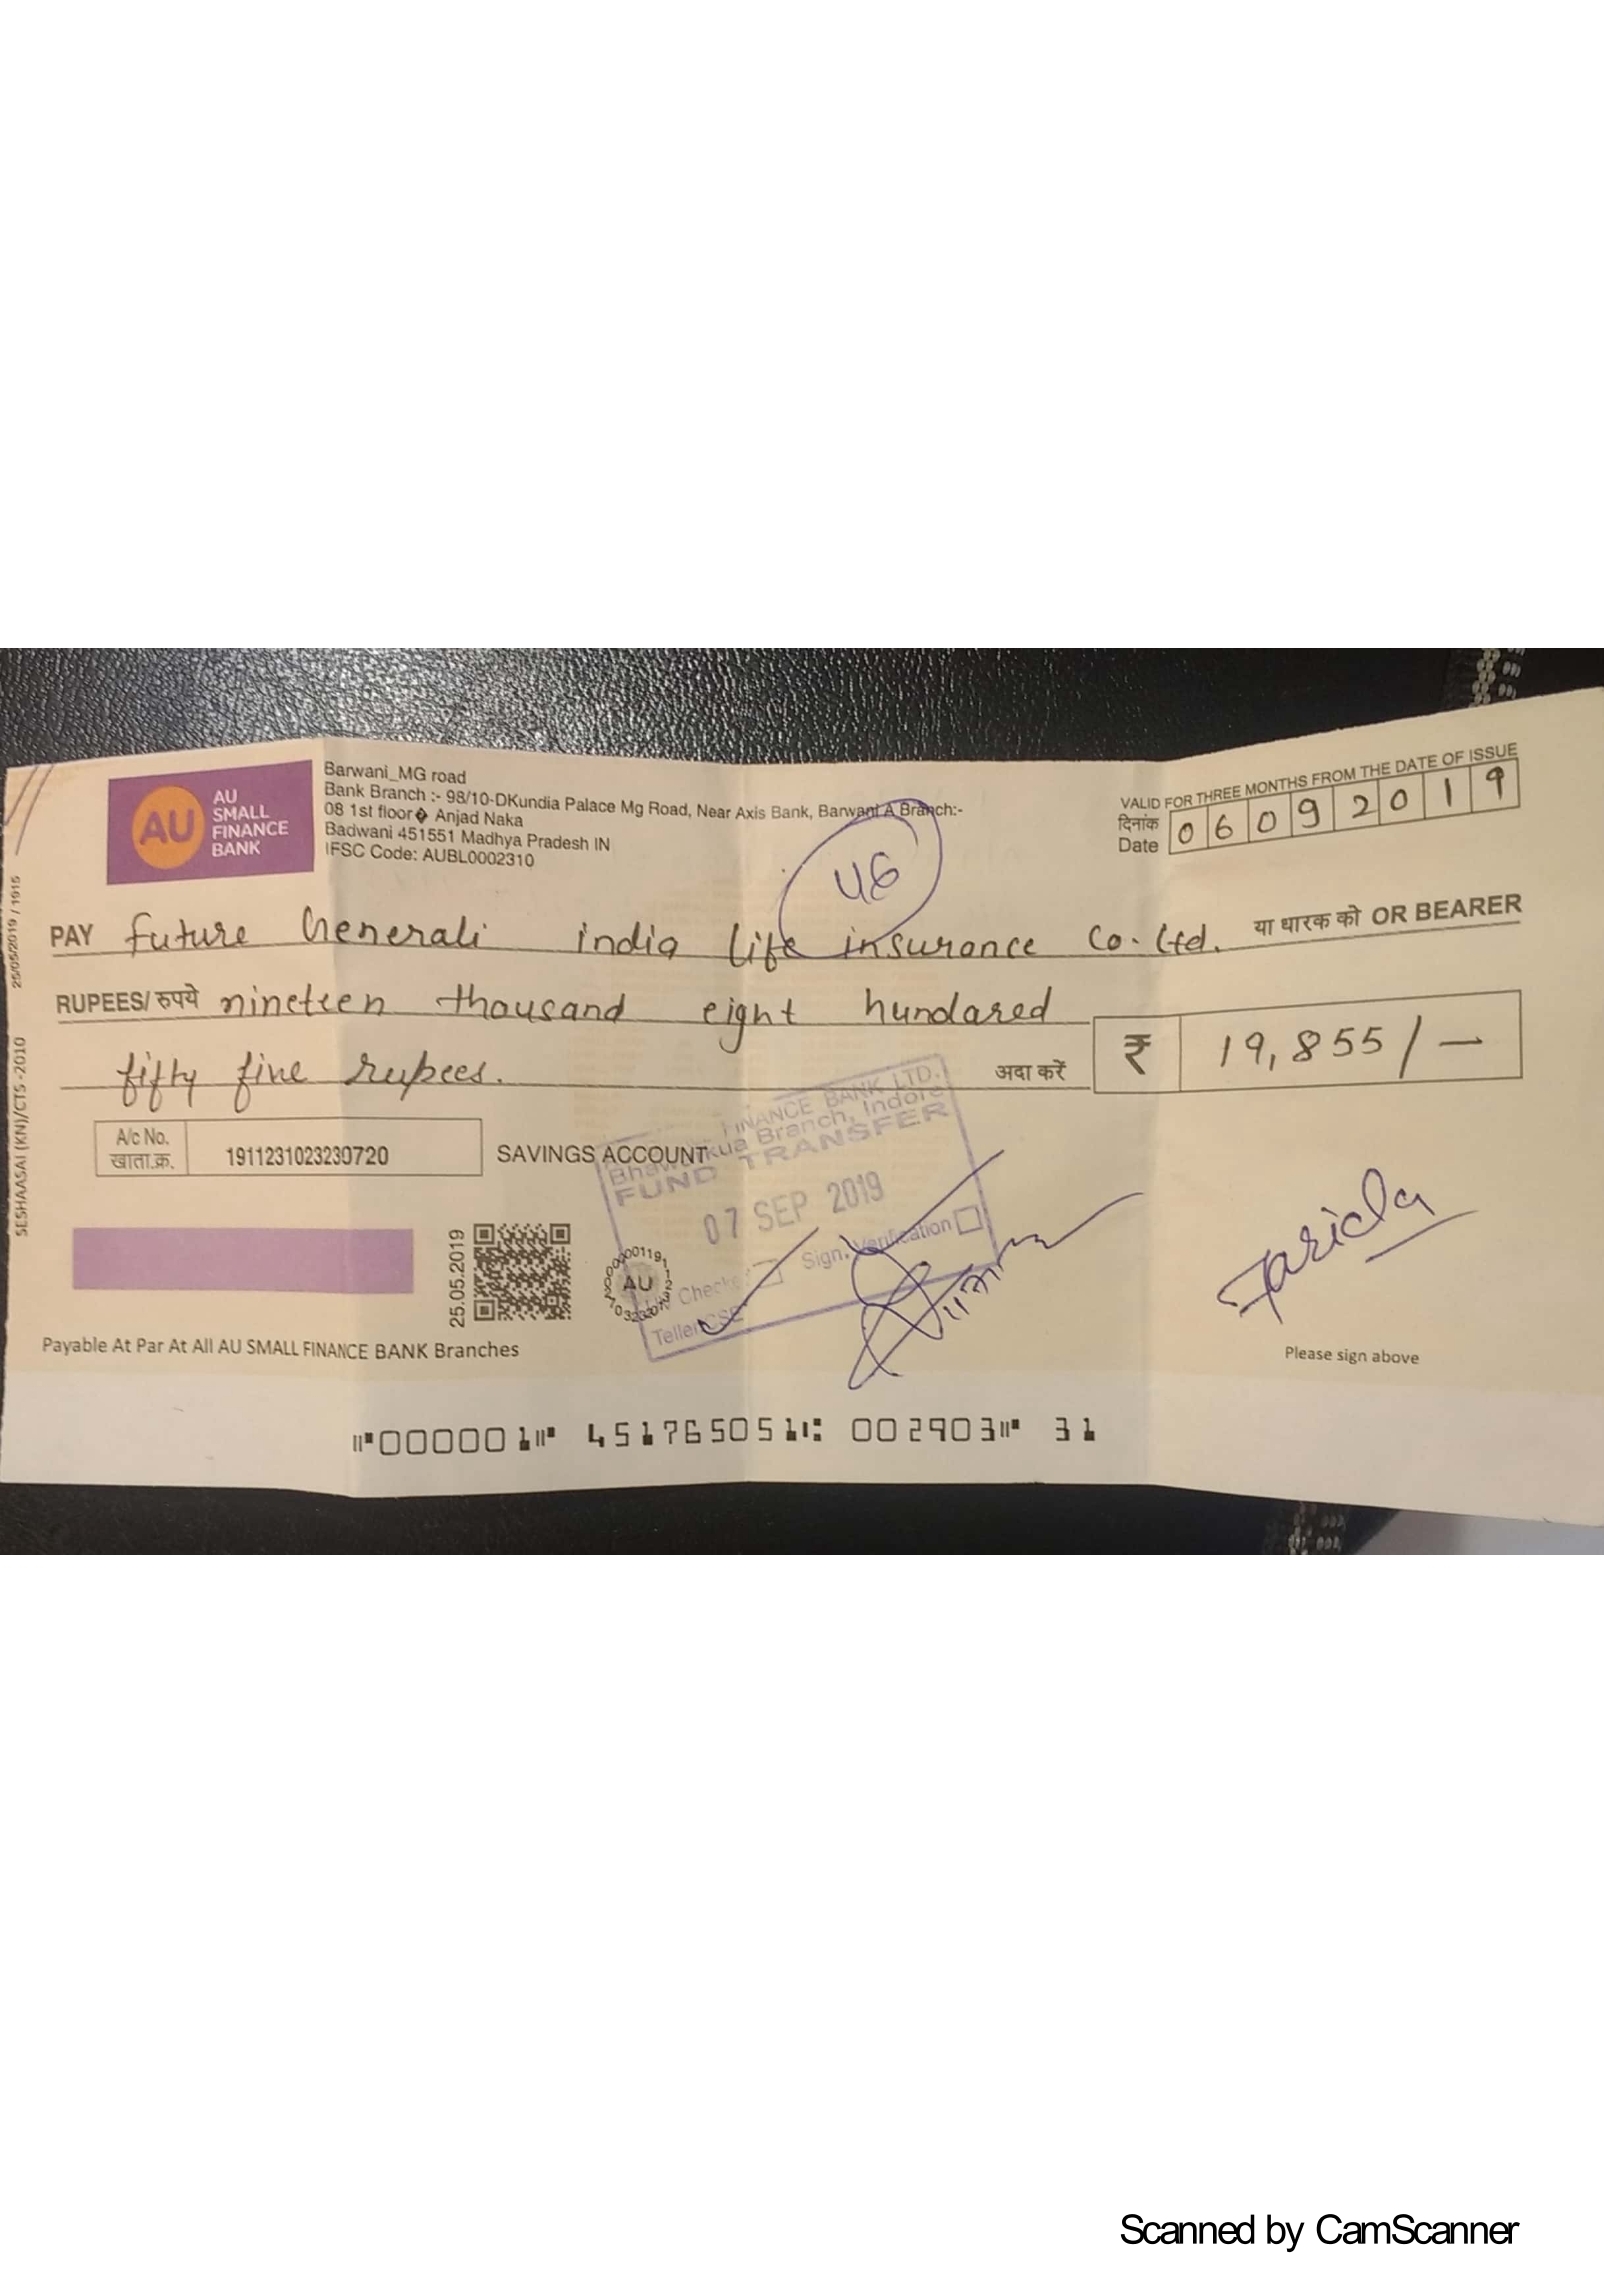 AU
AU
SMALL
FINANCE
BANK
Barwani_MG road
Bank Branch :- 98/10-DKundia Palace Mg Road, Near Axis Bank, Barwani A Branch:-
08 1st floor� Anjad Naka
Badwani 451551 Madhya Pradesh IN
IFSC Code: AUBL0002310
VALID FOR THREE MONTHS FROM THE DATE OF ISSUE
दिनांक
Date 06092019
46
PAY future Generali india life insurance Co. Ltd. या धारक को OR BEARER
RUPEES/ रुपये nineteen thousand eight hundared
fifty five rupees. अदा करें ₹ 19,855/-
A/c No.
खाता.क्र. 1911231023230720 SAVINGS ACCOUNT
FINANCE BANK LTD.
Branch, Indore
FUND TRANSFER
07 SEP 2019
Sign. Verification
Teller/CSE
25.05.2019
AU
Farida
Payable At Par At All AU SMALL FINANCE BANK Branches
Please sign above
⑈000001⑈ 451765051⑆ 002903⑈ 31
SESHAASAI (KN)/CTS -2010 25/05/2019 / 1915
Scanned by CamScanner